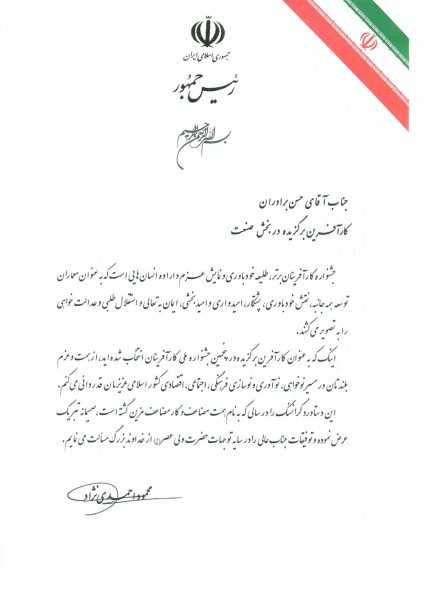 جمهوری اسلامی ایران
رئیس جمهور
بسم الله الرحمن الرحیم
جناب آقای حسن برادران
کارآفرین برگزیده در بخش صنعت
جشنواره کارآفرینان برتر، طلیعه خودباوری و نمایش عزم و اراده انسان‌هایی است که به عنوان معماران
توسعه همه جانبه، نقش خودباوری، پشتکار، امیدواری و امیدبخشی، ایمان به تعالی و استقلال طلبی و عدالت خواهی
را به تصویر می‌کشند.
اینک که به عنوان کارآفرین برگزیده در پنجمین جشنواره ملی کارآفرینان انتخاب شده‌اید، از همت و عزم
بلندتان در مسیر نوخواهی، نوآوری و نوسازی فرهنگی، اجتماعی، اقتصادی کشور اسلامی عزیزمان قدردانی می‌کنم.
این دستاورد گرانسنگ را در سالی که به نام همت مضاعف و کار مضاعف مزین گشته است، صمیمانه تبریک
عرض نموده و توفیقات جنابعالی را در سایه توجهات حضرت ولی عصر از خداوند بزرگ مسألت می‌نمایم.
محمود احمدی نژاد